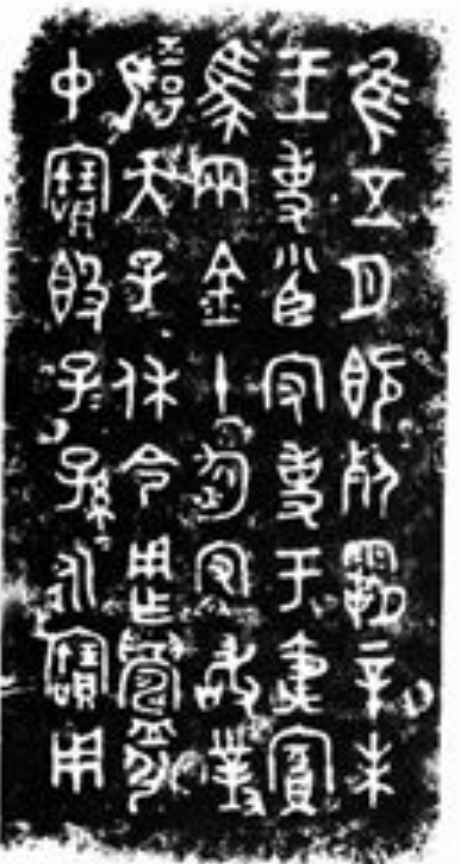 隹五月既死霸辛未
王事小臣守事于夷賓
馬兩金十鈞守敢對
揚天子休令用乍鑄引
中寶𣪘子子孫永寶用